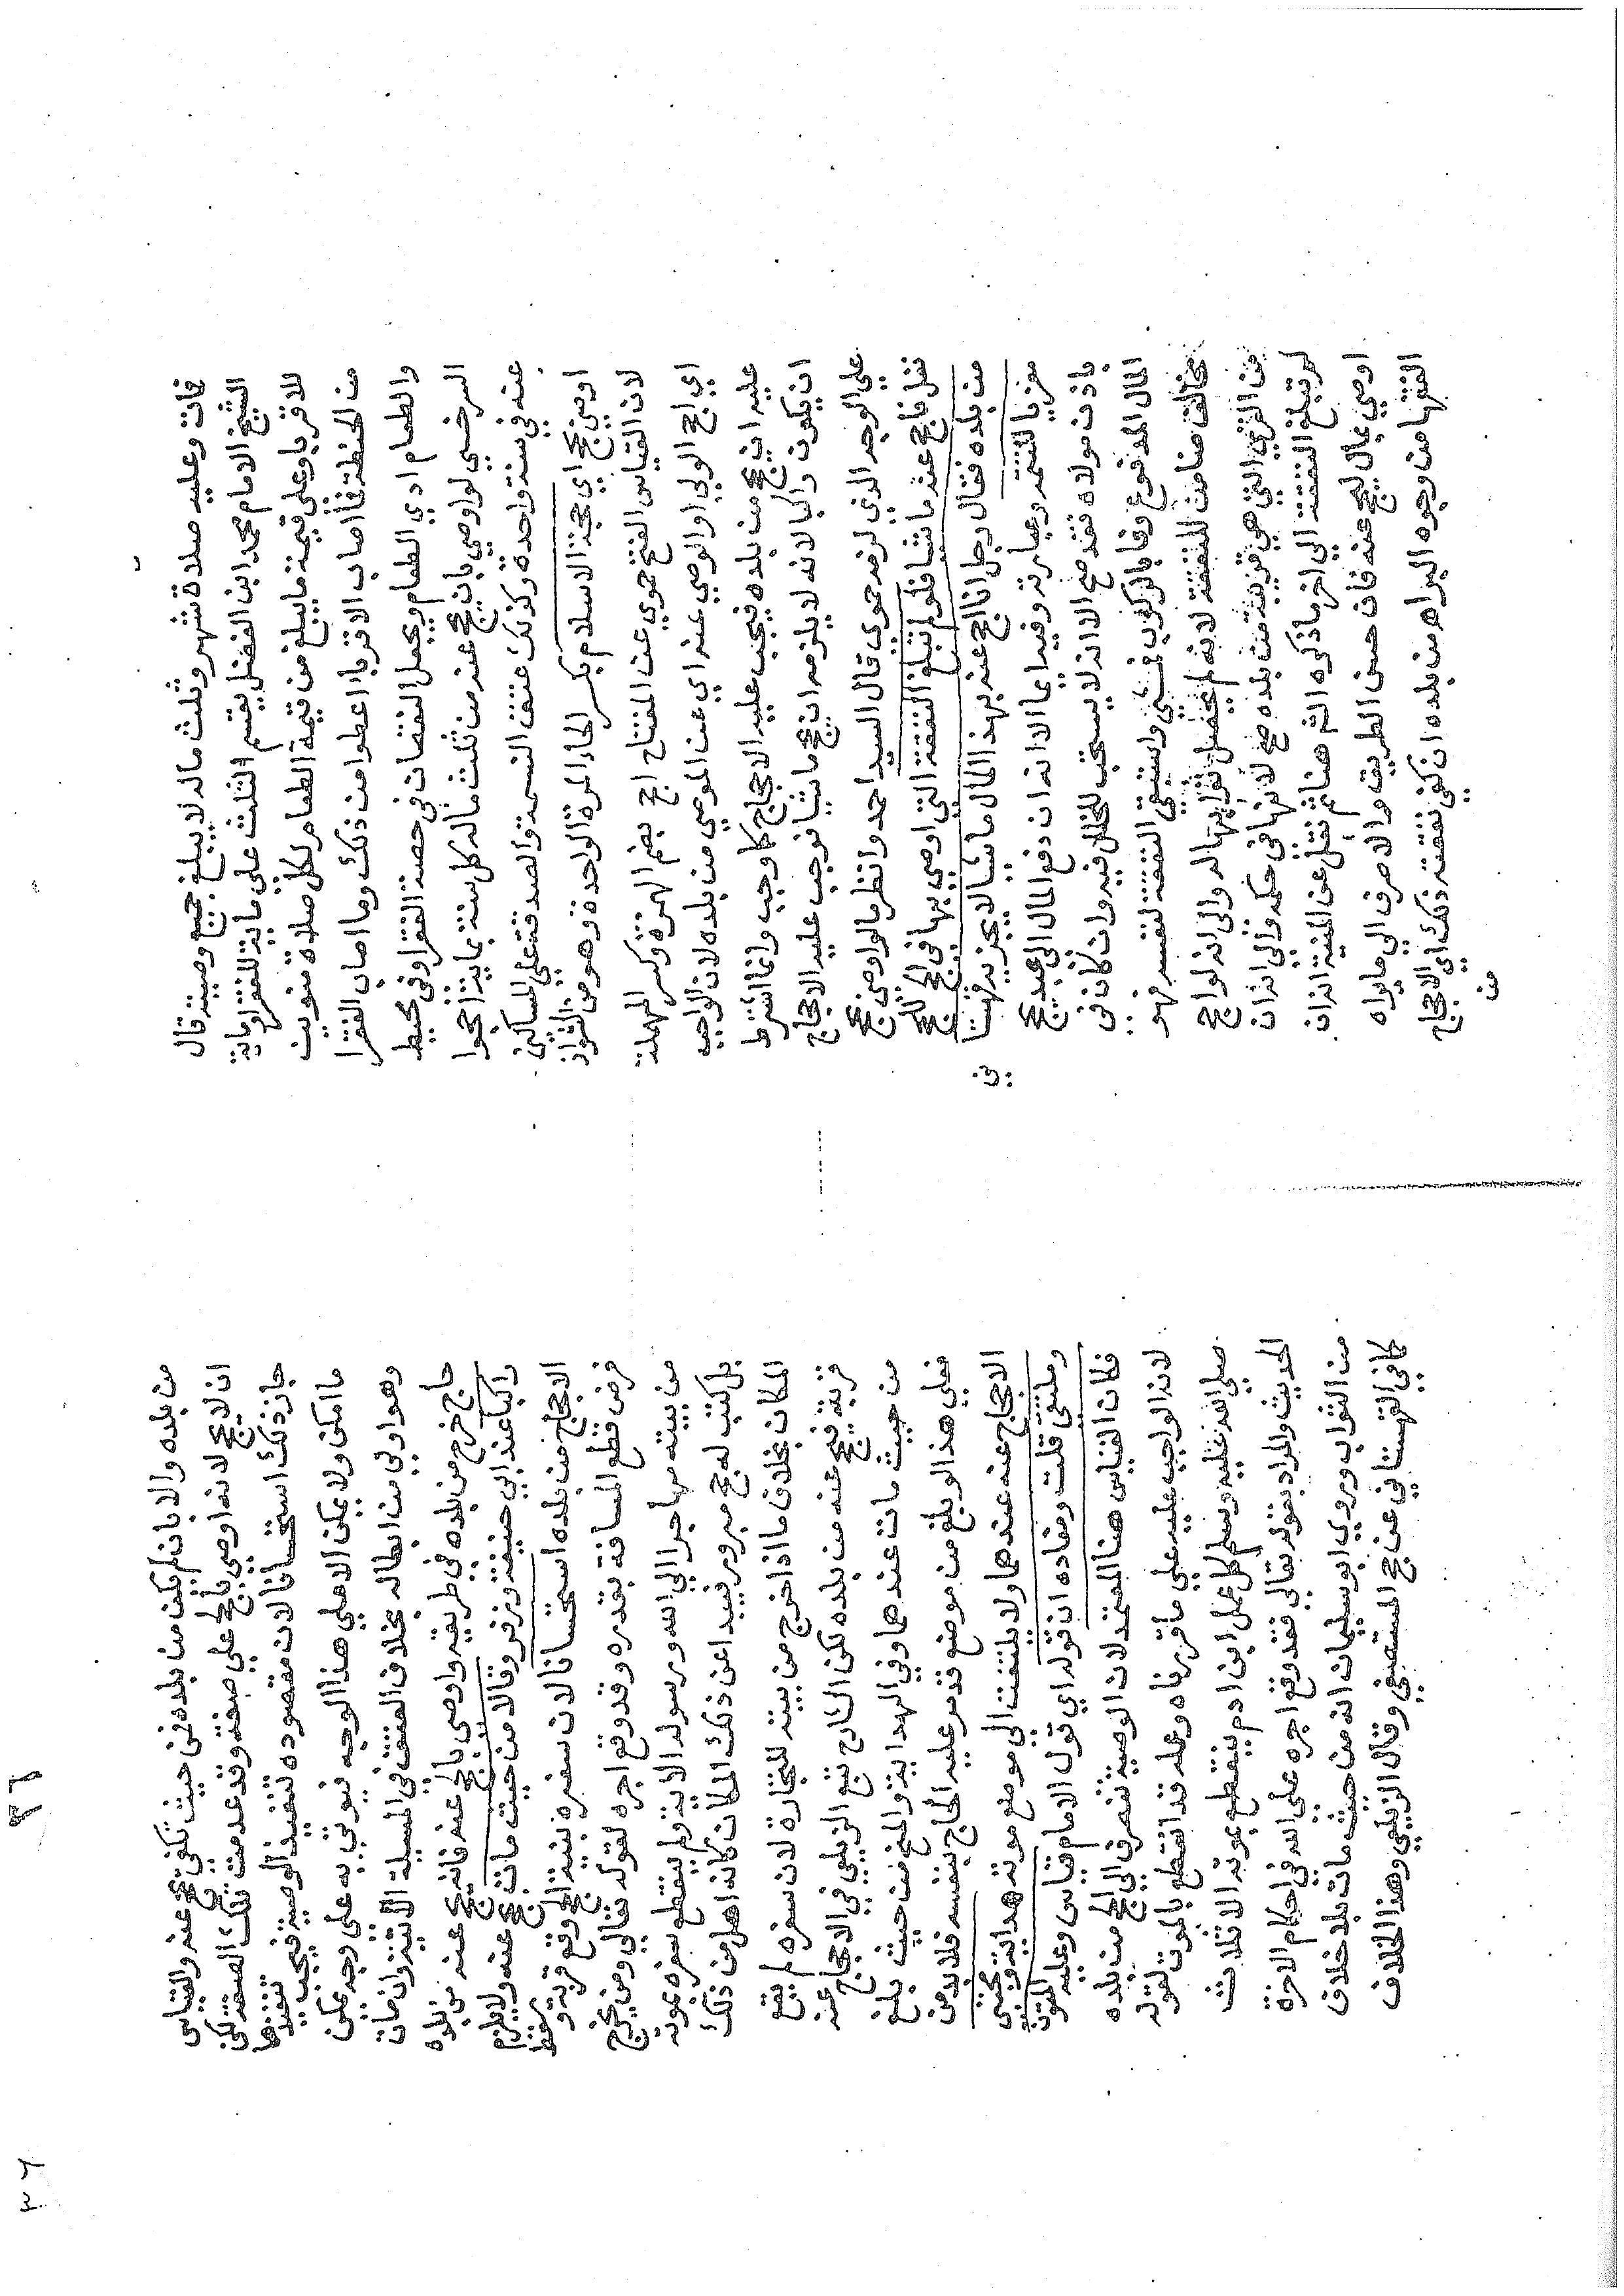 فان وعليه صلاة شهر وثلث ماله لا يبلغ جميع وصيته قال
الشيخ الامام محمد ابن الفضل يقسم الثلث على مائة للفقرا ومائة
للاقربا وعلى قيمة ما يبلغ من قيمة الطعام لكل صلاة منوين
من الحنطة فما اصاب الاقربا اعطوا من ذلك وما اصاب الفقرا
والطعام ادي الطعام ويجعل النقصان في حصة الفقرا وفي محيط
السرخسي لو اوصي بان يحج عنه من ثلث ماله كل سنة بمائة احجوا
عنه في سنة واحدة وكذلك عتق النسمة والصدقة على المساكين
اوصي بحج اي حجة الاسلام بكسر الحاء المرة الواحدة وهو من الشواذ
لان القياس الفتح حموي عن المفتاح احج بضم الهمزة وكسر المهملة
اي احج الولي او الوصي عنه اي عن الموصي من بلده لان الواجب
عليه ان يحج من بلده فيجب عليه الاحجاج كما وجب وانما اشترط
ان يكون راكبا لانه لا يلزمه ان يحج ماشيا فوجب عليه الاحجاج
على الوجه الذي لزمه حموي قال السيد احمد وانظر ما لو اوصي بحج
نفل فاحج عنه ماشيا فلو لم تبلغ النفقة التي اوصي بها في الحج للحج
من بلده فقال رجل انا احج عنه بهذا المال ماشيا لا يجزيه قهستاني
معزيا للتتمة وعبارته وفيه ايما الا انه ان دفع المال الى عبد يحج
باذن مولاه فقد صح الا انه لا يستحب للخلل فيه وان كان في
المال المدفوع وفا بالركوب فمشي واستبقي النفقة لنفسه فهو
مخالف ضامن للنفقة لانه لم يحصل ثوابها له والى انه لو احج
من القري التي هي قريبة من بلده صح لانها في حكمه والى انه ان
لم تبلغ النفقة الي اخر ما ذكره الشم هنا ثم نقل عن المنية انه ان
اوصي بمال ليحج عنه فان حسن الطريق والا صرف الي ما يراه
الفقها من وجوه البر اهـ من بلده ان كفي نفقته ذلك اي الاحجاج
من
من بلده والا بان لم يكف من بلده فمن حيث تكفي يحج عنه والقياس
ان لا يحج لانه اوصي بالحج على صفة وقد عدمت تلك الصفة لكن
جاز ذلك استحسانا لان مقصوده تنفيذ الوصية فيجب تنفيذها
ما امكن ولا يمكن الا على هذا الوجه فيوتي به على وجه يمكن
وهو اولي من ابطاله بخلاف العتق في المسيلة الاتية وان مات
حاج خرج من بلده في طريقه واوصي بالحج عنه فانه يحج عنه من بلده
راكبا عند ابي حنيفة وزفر وقالا من حيث مات يحج عنه ولا يلزم
الاحجاج من بلده استحسانا لان سفره بنية الحج وقع قربة وسقط
فرض قطع المسافة بقدره وقد وقع اجره لقوله تعالي ومن يخرج
من بيته مهاجرا الي الله ورسوله الاية ولم ينقطع سفره بموته
بل كتب له حج مبرور فيبدا عن ذلك المكان كانه اهل من ذلك
المكان بخلاف ما اذا خرج من بيته للتجارة لان سفره لم يقع
قربة فيحج عنه من بلده لكن الشارح تبع الزيلعي في الاحجاج عنه
من حيث مات عندهما وفي الهداية والمنح من حيث بلغ
فعلي هذا لو بلغ من موضع قدم عليه الحاج بنفسه فلا بد من
الاحجاج عنه عندهما ولا يلتفت الي موضع موته هداية ومجتبي
وملتقي قلت ومفاده ان قوله اي قول الامام قياس وعليه المتون
فكان القياس هنا المعتمد لان الوصية تنصرف الي الحج من بلده
لانه الواجب عليه علي ما قررناه وعمله قد انقطع بالموت لقوله
صلي الله عليه وسلم كل عمل ابن ادم ينقطع بموته الا ثلاث
الحديث والمراد بقوله تعالي فقد وقع اجره علي الله في احكام الاخرة
من الثواب وروي ابو سليمان انه من حيث مات بلا خلاف
كما في القهستاني عن حج المستصفي وقال الزيلعي وهذا الخلاف
٩٦
٣٦